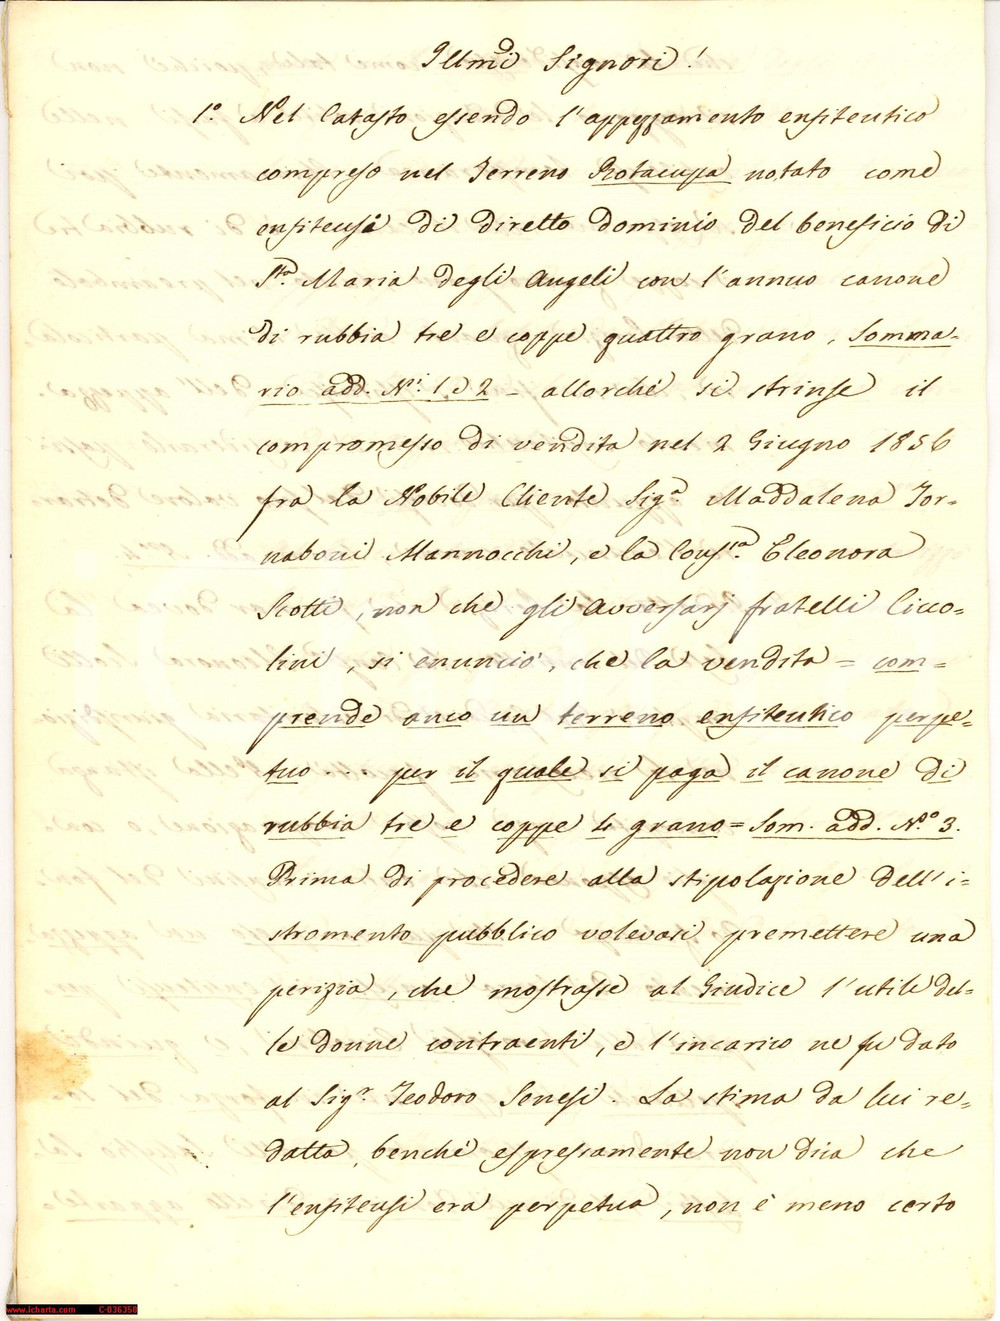 Illmi Signori!
1.° Nel Catasto essendo l'appezzamento enfiteutico
compreso nel Terreno Rotacupa notato come
enfiteusi di diretto dominio del beneficio di
S.ta Maria degli Angeli con l'annuo canone
di rubbia tre e coppe quattro grano, Somma-
rio add. N.i 1 e 2 - allorché si strinse il
compromesso di vendita nel 2 Giugno 1856
fra la Nobile Cliente Sig.a Maddalena Tor-
naboni Mannocchi, e la Cons.ra Eleonora
Scotti, non che gli Avversarj fratelli Cicco=
lini, si enunciò, che la vendita = com=
prende anco un terreno enfiteutico perpe=
tuo ... per il quale si paga il canone di
rubbia tre e coppe 4 grano = Som. add. N.° 3.
Prima di procedere alla stipolazione dell'i=
stromento pubblico volevasi premettere una
perizia, che mostrasse al Giudice l'utile del=
le donne contraenti, e l'incarico ne fu dato
al Sig.r Teodoro Senesi. La stima da lui re=
datta, benché espressamente non dica che
l'enfiteusi era perpetua, non è meno certo
www.icharta.com C-036350